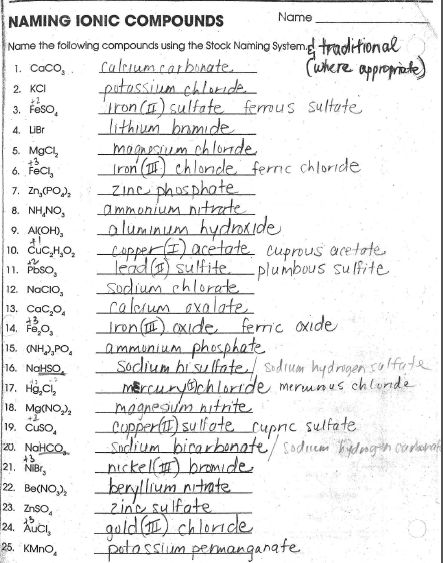 NAMING IONIC COMPOUNDS Name
Name the following compounds using the Stock Naming System. & traditional
(where appropriate)
1. CaCO₃ calcium carbonate
2. KCl potassium chloride
+2
3. FeSO₄ iron (II) sulfate ferrous sulfate
4. LiBr lithium bromide
5. MgCl₂ magnesium chloride
+3
6. FeCl₃ iron (III) chloride ferric chloride
7. Zn₃(PO₄)₂ zinc phosphate
8. NH₄NO₃ ammonium nitrate
9. Al(OH)₃ aluminum hydroxide
+1
10. CuC₂H₃O₂ copper (I) acetate cuprous acetate
+2
11. PbSO₃ lead (II) sulfite plumbous sulfite
12. NaClO₃ sodium chlorate
13. CaC₂O₄ calcium oxalate
+3
14. Fe₂O₃ iron (III) oxide ferric oxide
15. (NH₄)₃PO₄ ammonium phosphate
16. NaHSO₄ sodium bisulfate / sodium hydrogen sulfate
17. Hg₂Cl₂ mercury (I) chloride mercurous chloride
18. Mg(NO₂)₂ magnesium nitrite
+2
19. CuSO₄ copper (II) sulfate cupric sulfate
20. NaHCO₃ sodium bicarbonate / sodium hydrogen carbonate
+3
21. NiBr₃ nickel (III) bromide
22. Be(NO₃)₂ beryllium nitrate
23. ZnSO₄ zinc sulfate
+3
24. AuCl₃ gold (III) chloride
25. KMnO₄ potassium permanganate